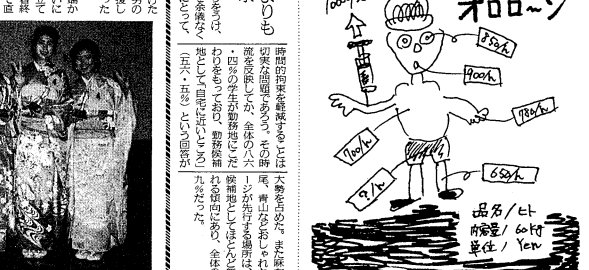 よりも
をうけ、
余儀なく
とって、
時間的拘束を軽減することは
切実な問題であろう。その時
流を反映してか、全体の八六
・四％の学生が勤務地にこだ
わりをもっており、勤務候補
地として「自宅に近いところ」
（五六・五％）という回答が
大勢を占めた。また麻
尾、青山などおしゃれ
ージが先行する場所は、
候補地としてほとんど
れる傾向にあり、全体
九％だった。
オロロ〜ン
850/h
900/h
780/h
700/h
?/h
650/h
品名/ヒト
内容量/60kg
単位/Yen